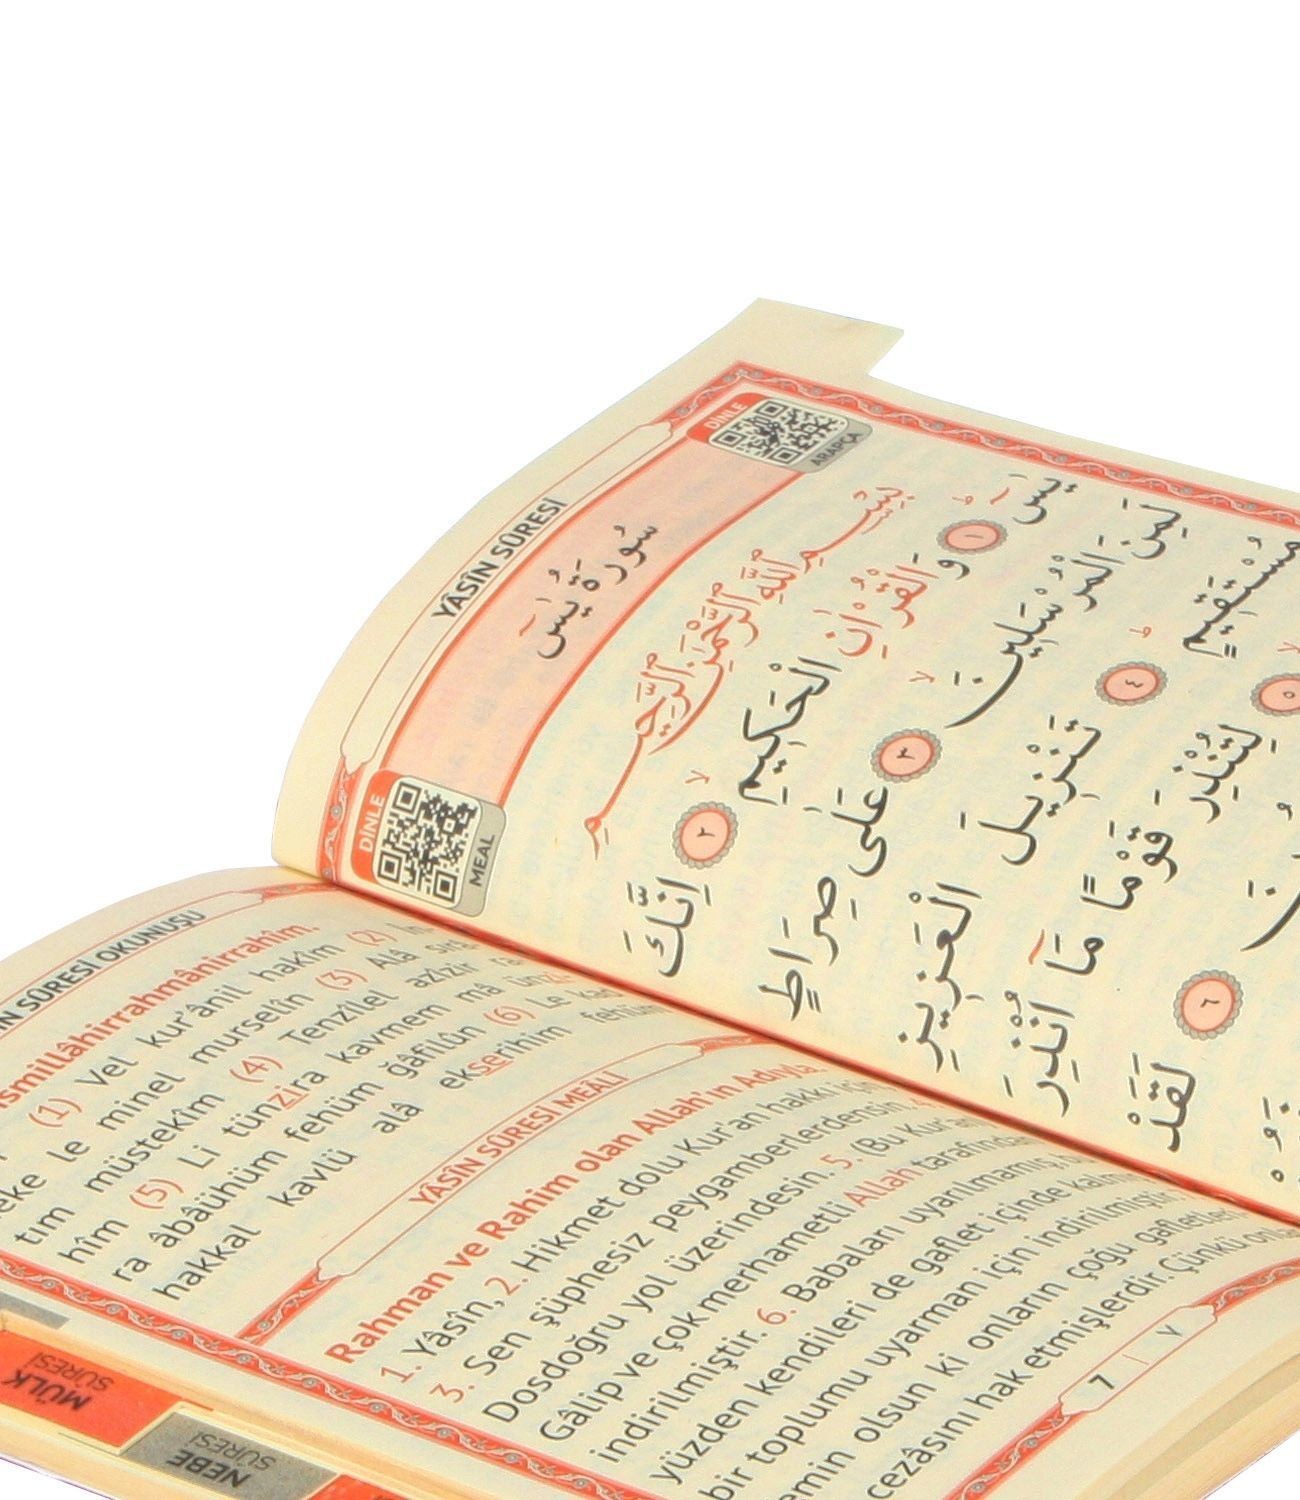 YÂSÎN SÛRESİ
DİNLE
ARAPÇA
سُورَةُ يٰسٓ
DİNLE
MEAL
بِسْمِ اللّٰهِ الرَّحْمٰنِ الرَّحٖيمِ
يٰسٓ ۚ ﴿١﴾ وَالْقُرْاٰنِ الْحَكٖيمِ ۙ ﴿٢﴾ اِنَّكَ
لَمِنَ الْمُرْسَلٖينَ ۙ ﴿٣﴾ عَلٰى صِرَاطٍ
مُسْتَقٖيمٍ ۜ ﴿٤﴾ تَنْزٖيلَ الْعَزٖيزِ
﴿٥﴾ لِتُنْذِرَ قَوْمًا مَٓا اُنْذِرَ
﴿٦﴾ لَقَدْ
SÛRESİ OKUNUŞU
(1) Vel kur'ânil hakîm (2) İn-
neke le minel murselîn (3) Alâ sırâ-
tım müstekîm (4) Tenzîlel azîzir ra-
hîm (5) Li tünzira kavmem mâ ünzi-
ra âbâühüm fehüm ğâfilûn (6) Le kad
hakkal kavlü alâ ekserihim fehüm
YÂSÎN SÛRESİ MEÂLİ
Rahman ve Rahim olan Allah'ın Adıyla.
1. Yâsîn, 2. Hikmet dolu Kur'an hakkı için
3. Sen şüphesiz peygamberlerdensin. 4.
Dosdoğru yol üzerindesin. 5. (Bu Kur'an)
Gâlip ve çok merhametli Allah tarafından
indirilmiştir. 6. Babaları uyarılmamış, bu
yüzden kendileri de gaflet içinde kalmış
bir toplumu uyarman için indirilmiştir.
emin olsun ki onların çoğu gafletleri
cezâsını hak etmişlerdir. Çünkü onlar
7 | ٧
MÜLK
SÛRESİ
NEBE
SÛRESİ